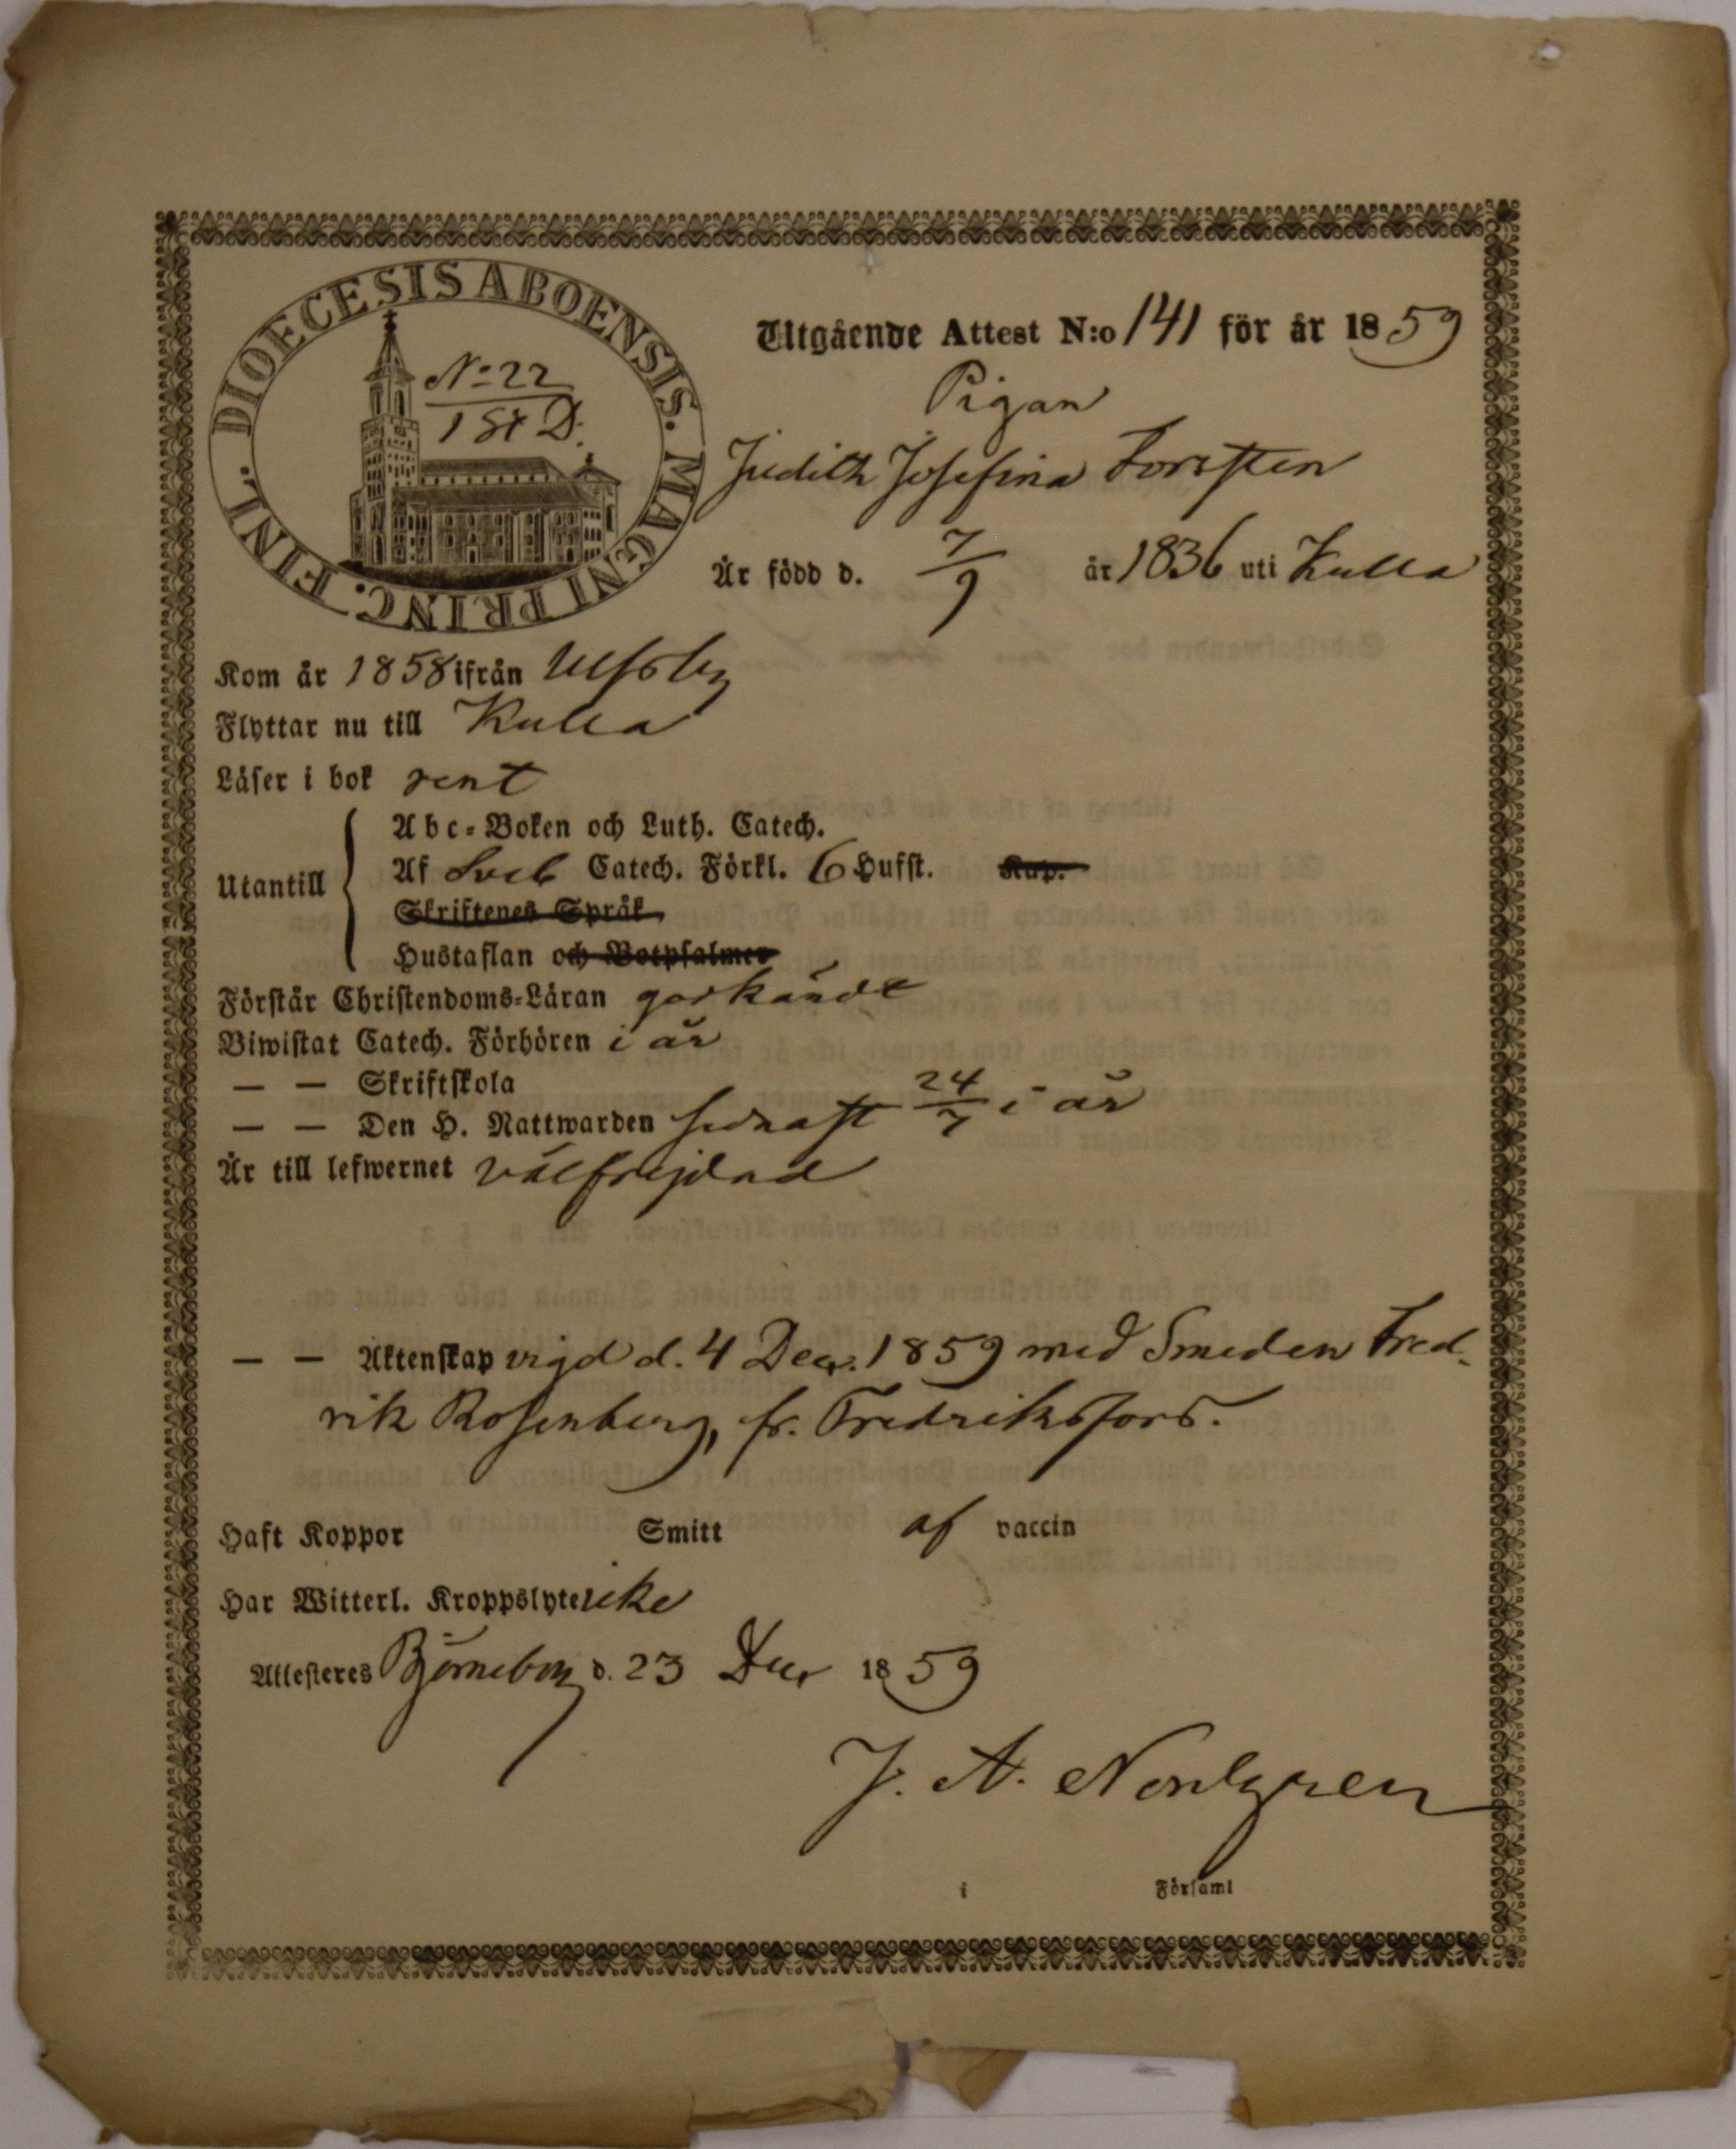 DIOECESIS ABOENSIS. MAGNI PRINC. FINL.
N:o 22
1 St D.
Utgående Attest N:o 141 för år 1859
Pigan
Judith Josefina Forsten
Är född d. 7/9 år 1836 uti Kulla
Kom år 1858 ifrån Ulfsby
Flyttar nu till Kulla
Läser i bok rent
Abc-Boken och Luth. Catech.
Utantill
Af Sveb Catech. Förkl. 6 Hufst. Kap.
Skriftenes Språk,
Hustaflan och Botpsalmer
Förstår Christendoms-Läran godkändt
Biwistat Catech. Förhören i år
— — Skriftskola
— — Den H. Nattwarden sednast 24/7 i år
Är till lefwernet välfrejdad
— — Äktenskap vigd d. 4 Dec. 1859 med Smeden Fred-
rik Rosenberg, fr. Fredriksfors.
Haft Koppor Smitt af vaccin
Har Witterl. Kroppslyte icke
Attesteres Björneborg d. 23 Dec 1859
J. A. Nordgren
i Församl